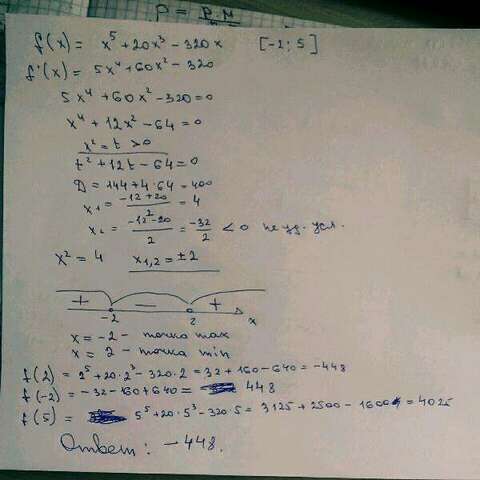 f(x) = x⁵ + 20x³ - 320x [-2; 5]
f'(x) = 5x⁴ + 60x² - 320
5x⁴ + 60x² - 320 = 0
x⁴ + 12x² - 64 = 0
x² = t > 0
t² + 12t - 64 = 0
D = 144 + 4·64 = 400
x₁ = (-12+20)/2 = 4
x₂ = (-12-20)/2 = -32/2 < 0 не уд. усл.
x² = 4 x₁,₂ = ±2
+ - +
-2 2 x
x = -2 - точка max
x = 2 - точка min
f(2) = 2⁵ + 20·2³ - 320·2 = 32 + 160 - 640 = -448
f(-2) = -32 - 160 + 640 = 448
f(5) = 5⁵ + 20·5³ - 320·5 = 3125 + 2500 - 1600 = 4025
Ответ: -448.